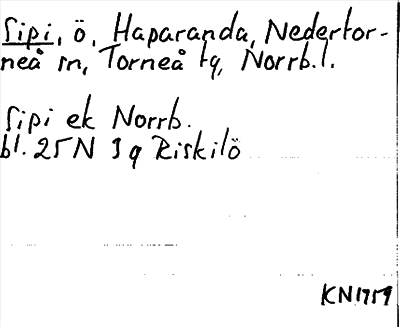 Sipi, ö, Haparanda, Nedertor-
neå sn, Torneå tg, Norrb.l.
Sipi ek Norrb.
bl. 25N 3q Riskilö
KN1759